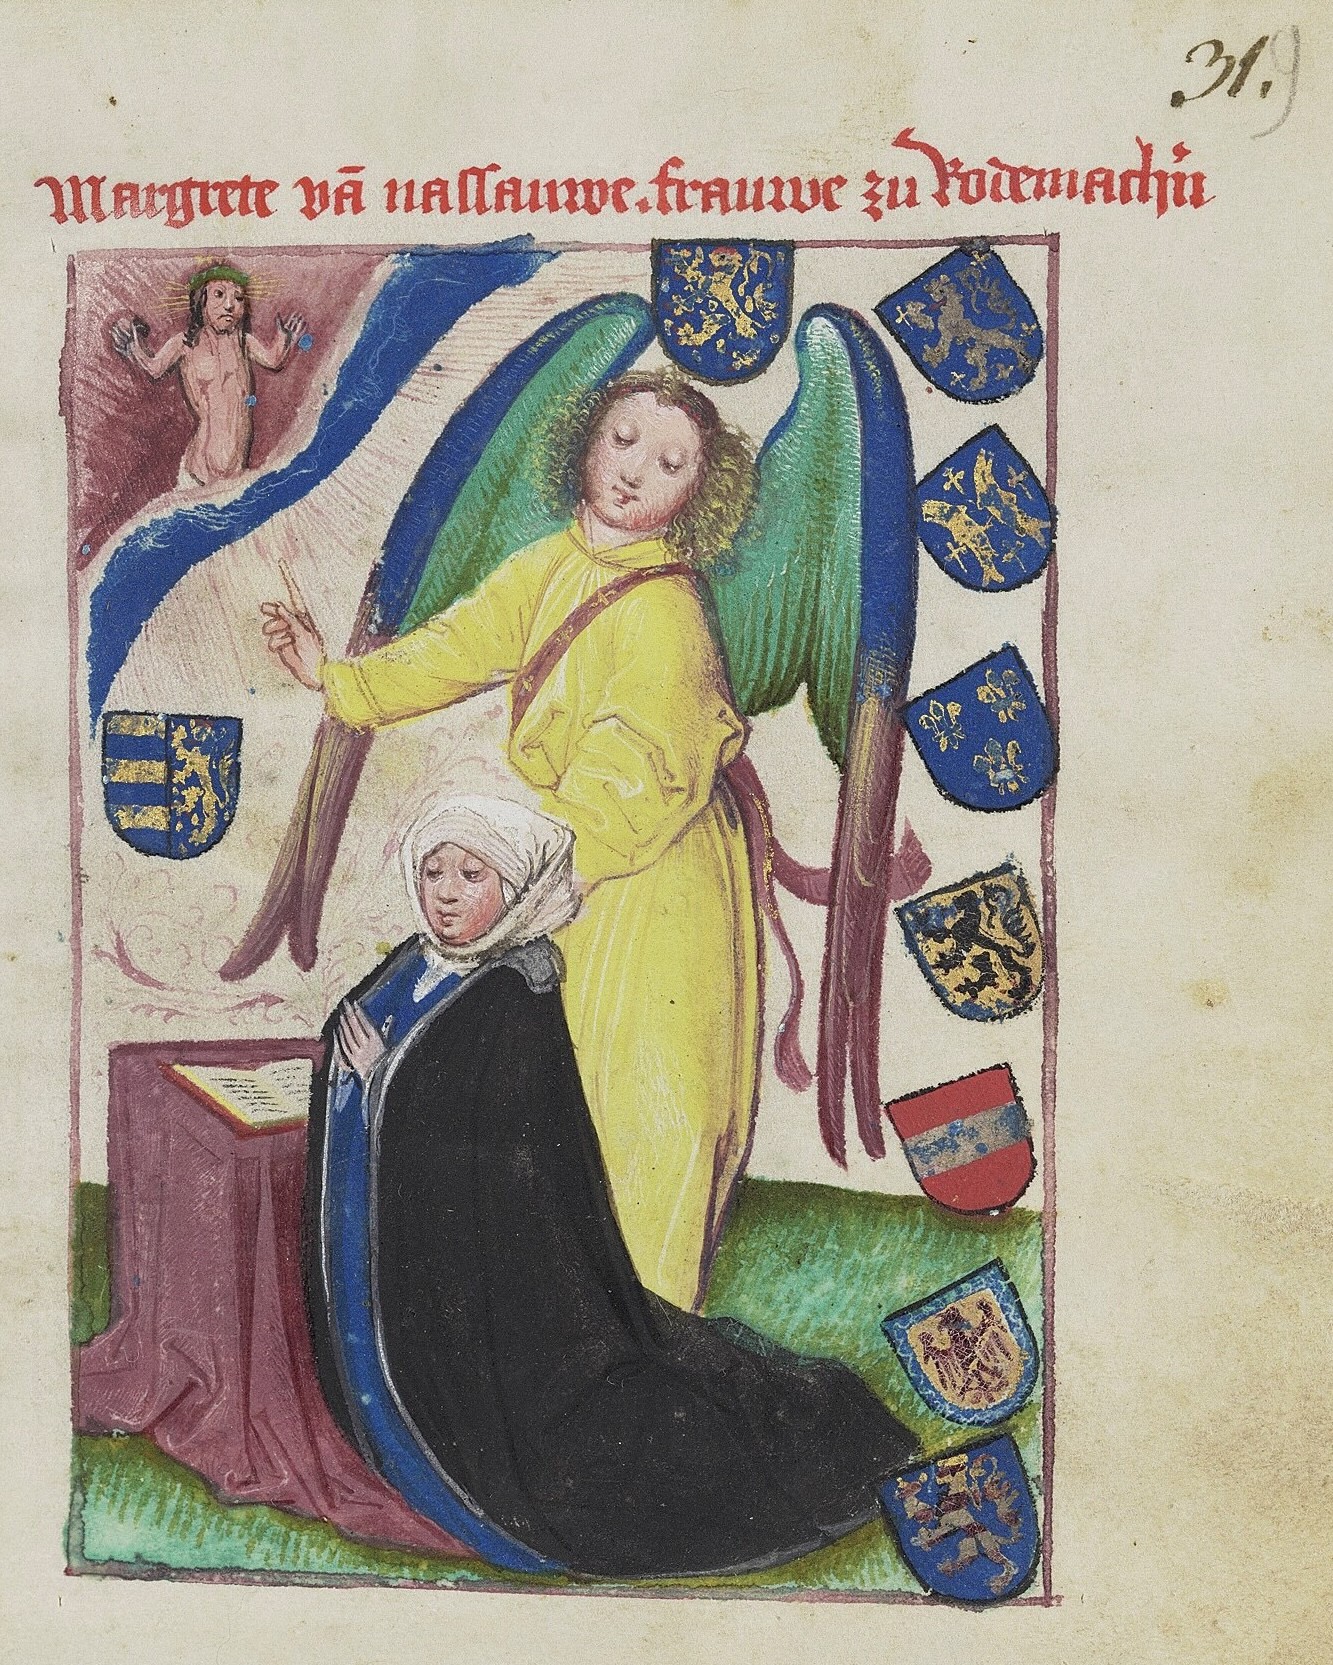 31.9
Margrete vā nassauwe. frauwe zu Rodemachn̄